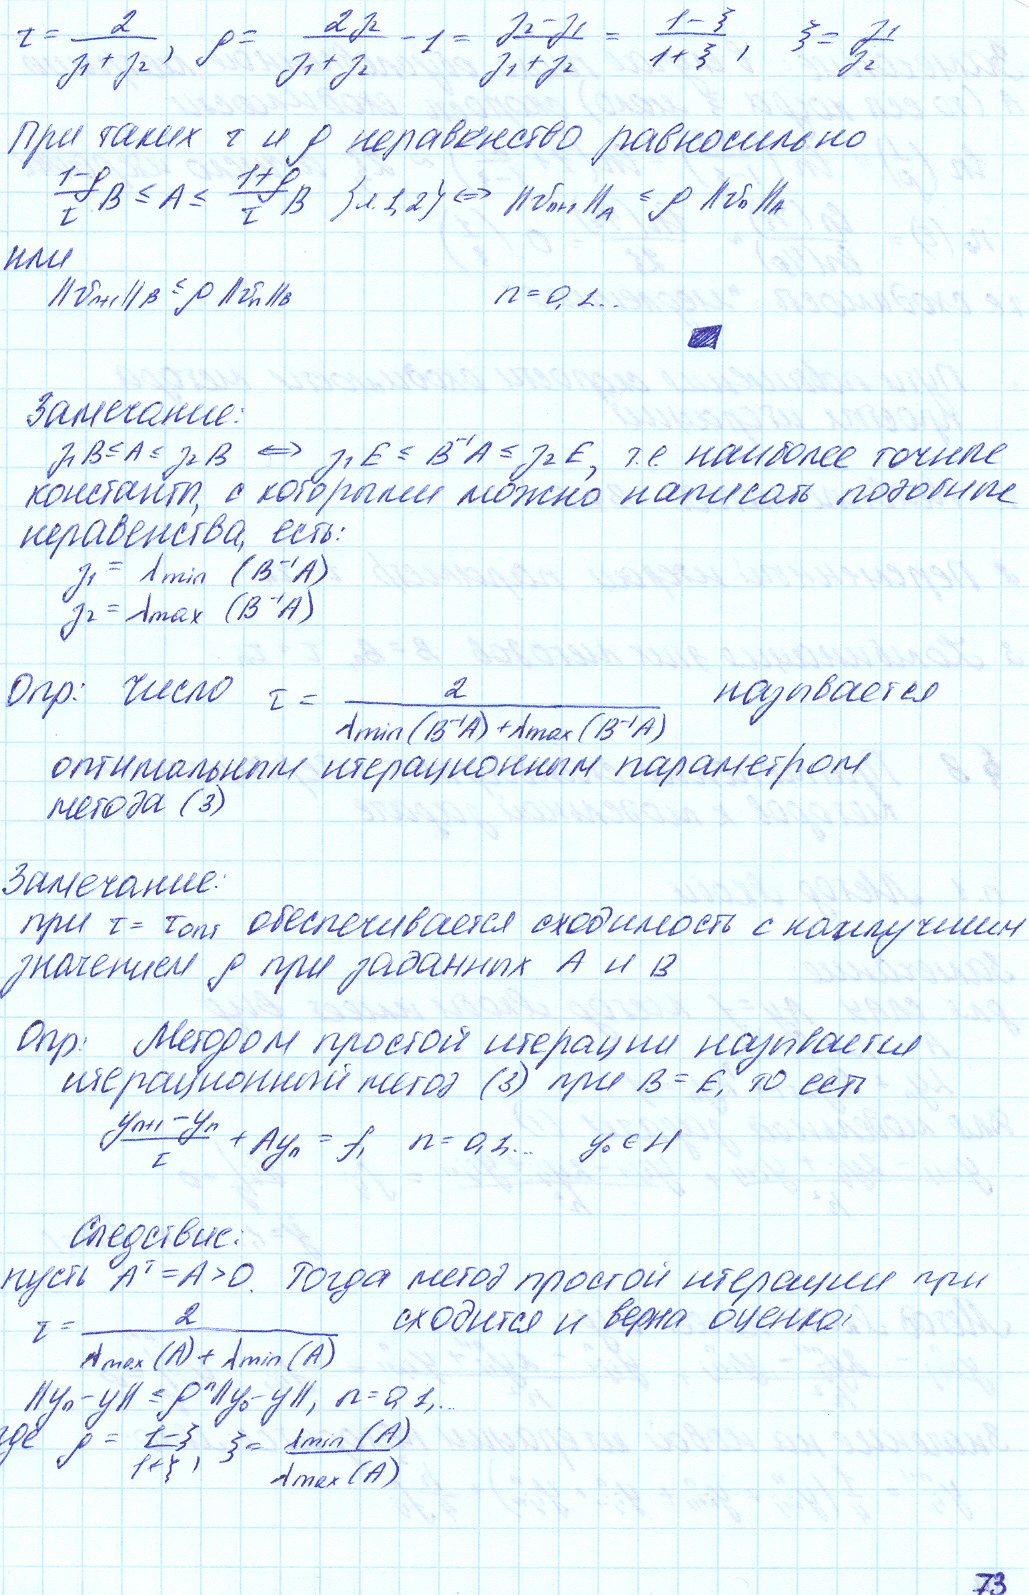 τ = 2/(γ₁ + γ₂), ρ = 2γ₂/(γ₁ + γ₂) − 1 = (γ₂ − γ₁)/(γ₁ + γ₂) = (1 − ξ)/(1 + ξ), ξ = γ₁/γ₂
При таких τ и ρ неравенство равносильно
(1−ρ)/τ B ≤ A ≤ (1+ρ)/τ B {л.1,2} ⇔ ||vₙ₊₁||_A ≤ ρ ||vₙ||_A
или
||vₙ₊₁||_B ≤ ρ ||vₙ||_B n = 0,1...
Замечание:
γ₁B ≤ A ≤ γ₂B ⇔ γ₁E ≤ B⁻¹A ≤ γ₂E, т.е. наиболее точные
константы, с которыми можно написать подобные
неравенства, есть:
γ₁ = λmin (B⁻¹A)
γ₂ = λmax (B⁻¹A)
Опр: Число τ = 2/(λmin(B⁻¹A) + λmax(B⁻¹A)) называется
оптимальным итерационным параметром
метода (3)
Замечание:
при τ = τопт обеспечивается сходимость с наилучшим
значением ρ при заданных A и B
Опр: Методом простой итерации называется
итерационный метод (3) при B = E, то есть
(yₙ₊₁ − yₙ)/τ + Ayₙ = f, n = 0,1,... y₀ ∈ H
Следствие:
пусть Aᵀ = A > 0. Тогда метод простой итерации при
τ = 2/(λmax(A) + λmin(A)) сходится и верна оценка:
||yₙ − y|| ≤ ρⁿ||y₀ − y||, n = 0,1,...
где ρ = (1−ξ)/(1+ξ), ξ = λmin(A)/λmax(A)
73